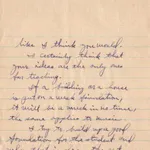 like I think you would.
I certainly think that
your ideas are the only ones
for teaching.
If a building or a house
is put on a weak foundation,
it will be a wreck in no time
the same applies to music.
I try to build up a good
foundation for the student and